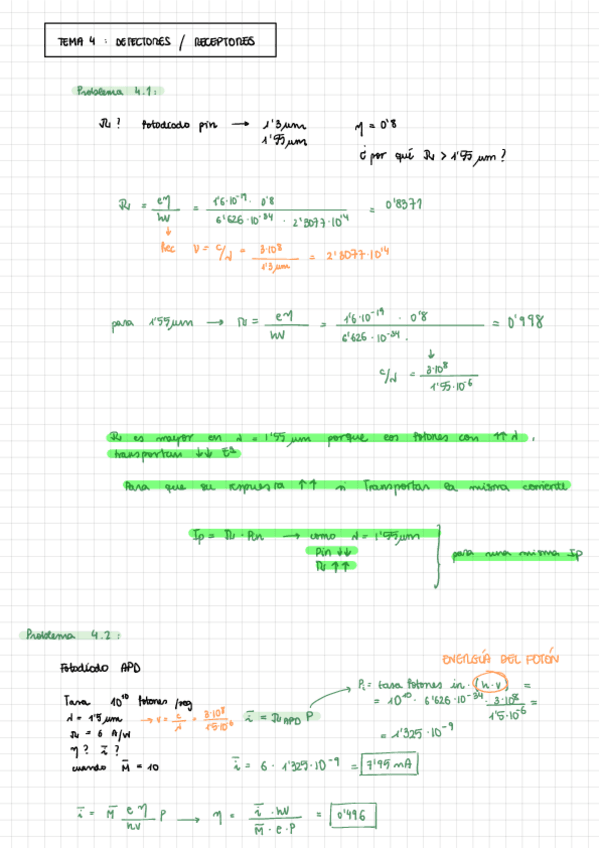 TEMA 4 : DETECTORES / RECEPTORES
Problema 4.1:
R ? fotodiodo pin → 1'3 µm η = 0'8
1'55 µm
¿ por qué R > 1'55 µm ?
R = eη / hν = 1'6·10⁻¹⁹ · 0'8 / 6'626·10⁻³⁴ · 2'3077·10¹⁴ = 0'8371
↓
Rec ν = c/λ = 3·10⁸ / 1'3 µm = 2'3077·10¹⁴
para 1'55 µm → R = eη / hν = 1'6·10⁻¹⁹ · 0'8 / 6'626·10⁻³⁴ · = 0'998
↓
c/λ = 3·10⁸ / 1'55·10⁻⁶
R es mayor en λ = 1'55 µm porque los fotones con ↑↑ λ ,
transportan ↓↓ Eª
Para que su respuesta ↑↑ si Transportar la misma corriente
Ip = R · Pin → como λ = 1'55 µm
Pin ↓↓
R ↑↑
para una misma Ip
Problema 4.2:
Fotodiodo APD
ENERGÍA DEL FOTÓN
Tasa 10¹⁰ fotones /seg
λ = 1'5 µm → ν = c/λ = 3·10⁸ / 1'5·10⁻⁶
R = 6 A/W
η ? i ?
cuando M = 10
i = R APD P
Pi = tasa fotones in · (h·ν) =
= 10¹⁰ · 6'626·10⁻³⁴ · 3·10⁸ / 1'5·10⁻⁶ =
= 1'325·10⁻⁹
i = 6 · 1'325·10⁻⁹ = 7'95 mA
i = M eη / hν P → η = i · hν / M · e · P = 0'496